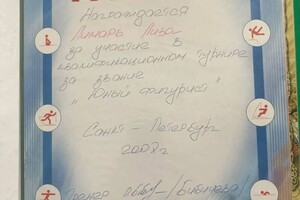 Награждается
Лимарь Лиза
за участие в
квалификационном турнире
за звание
"Юный фигурист"
Санкт-Петербург
2008г
Тренер